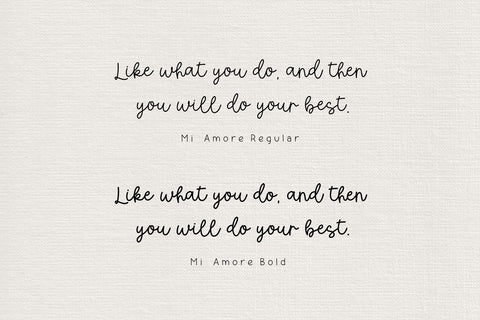 Like what you do, and then
you will do your best.
Mi Amore Regular
Like what you do, and then
you will do your best.
Mi Amore Bold